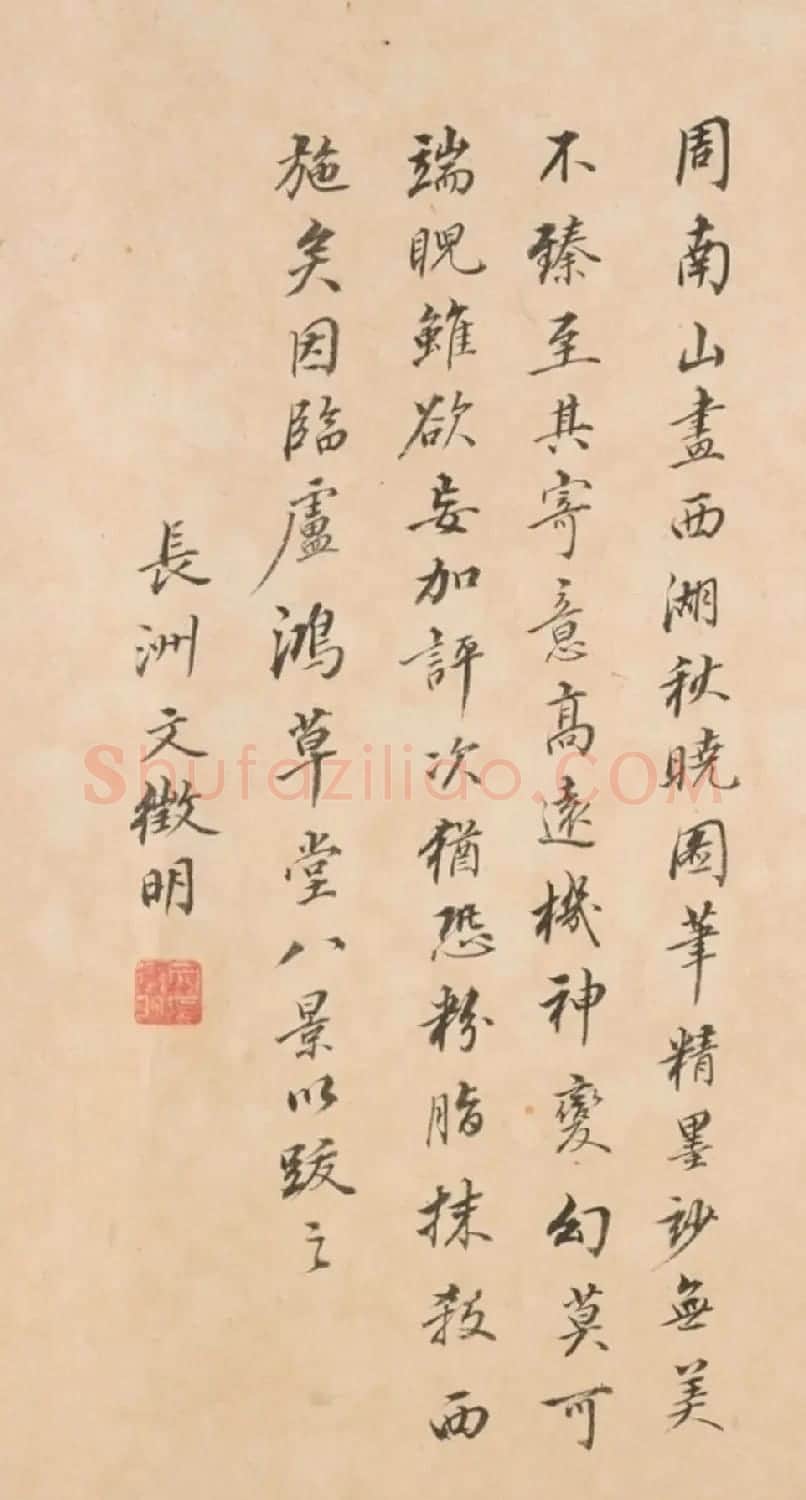 周南山畫西湖秋曉圖筆精墨玅無美
不臻至其寄意高遠機神變幻莫可
端睨雖欲妄加評次猶恐粉脂抹殺西
施矣因臨盧鴻草堂八景以跋之
長洲文徵明
Shufazilidao.COM